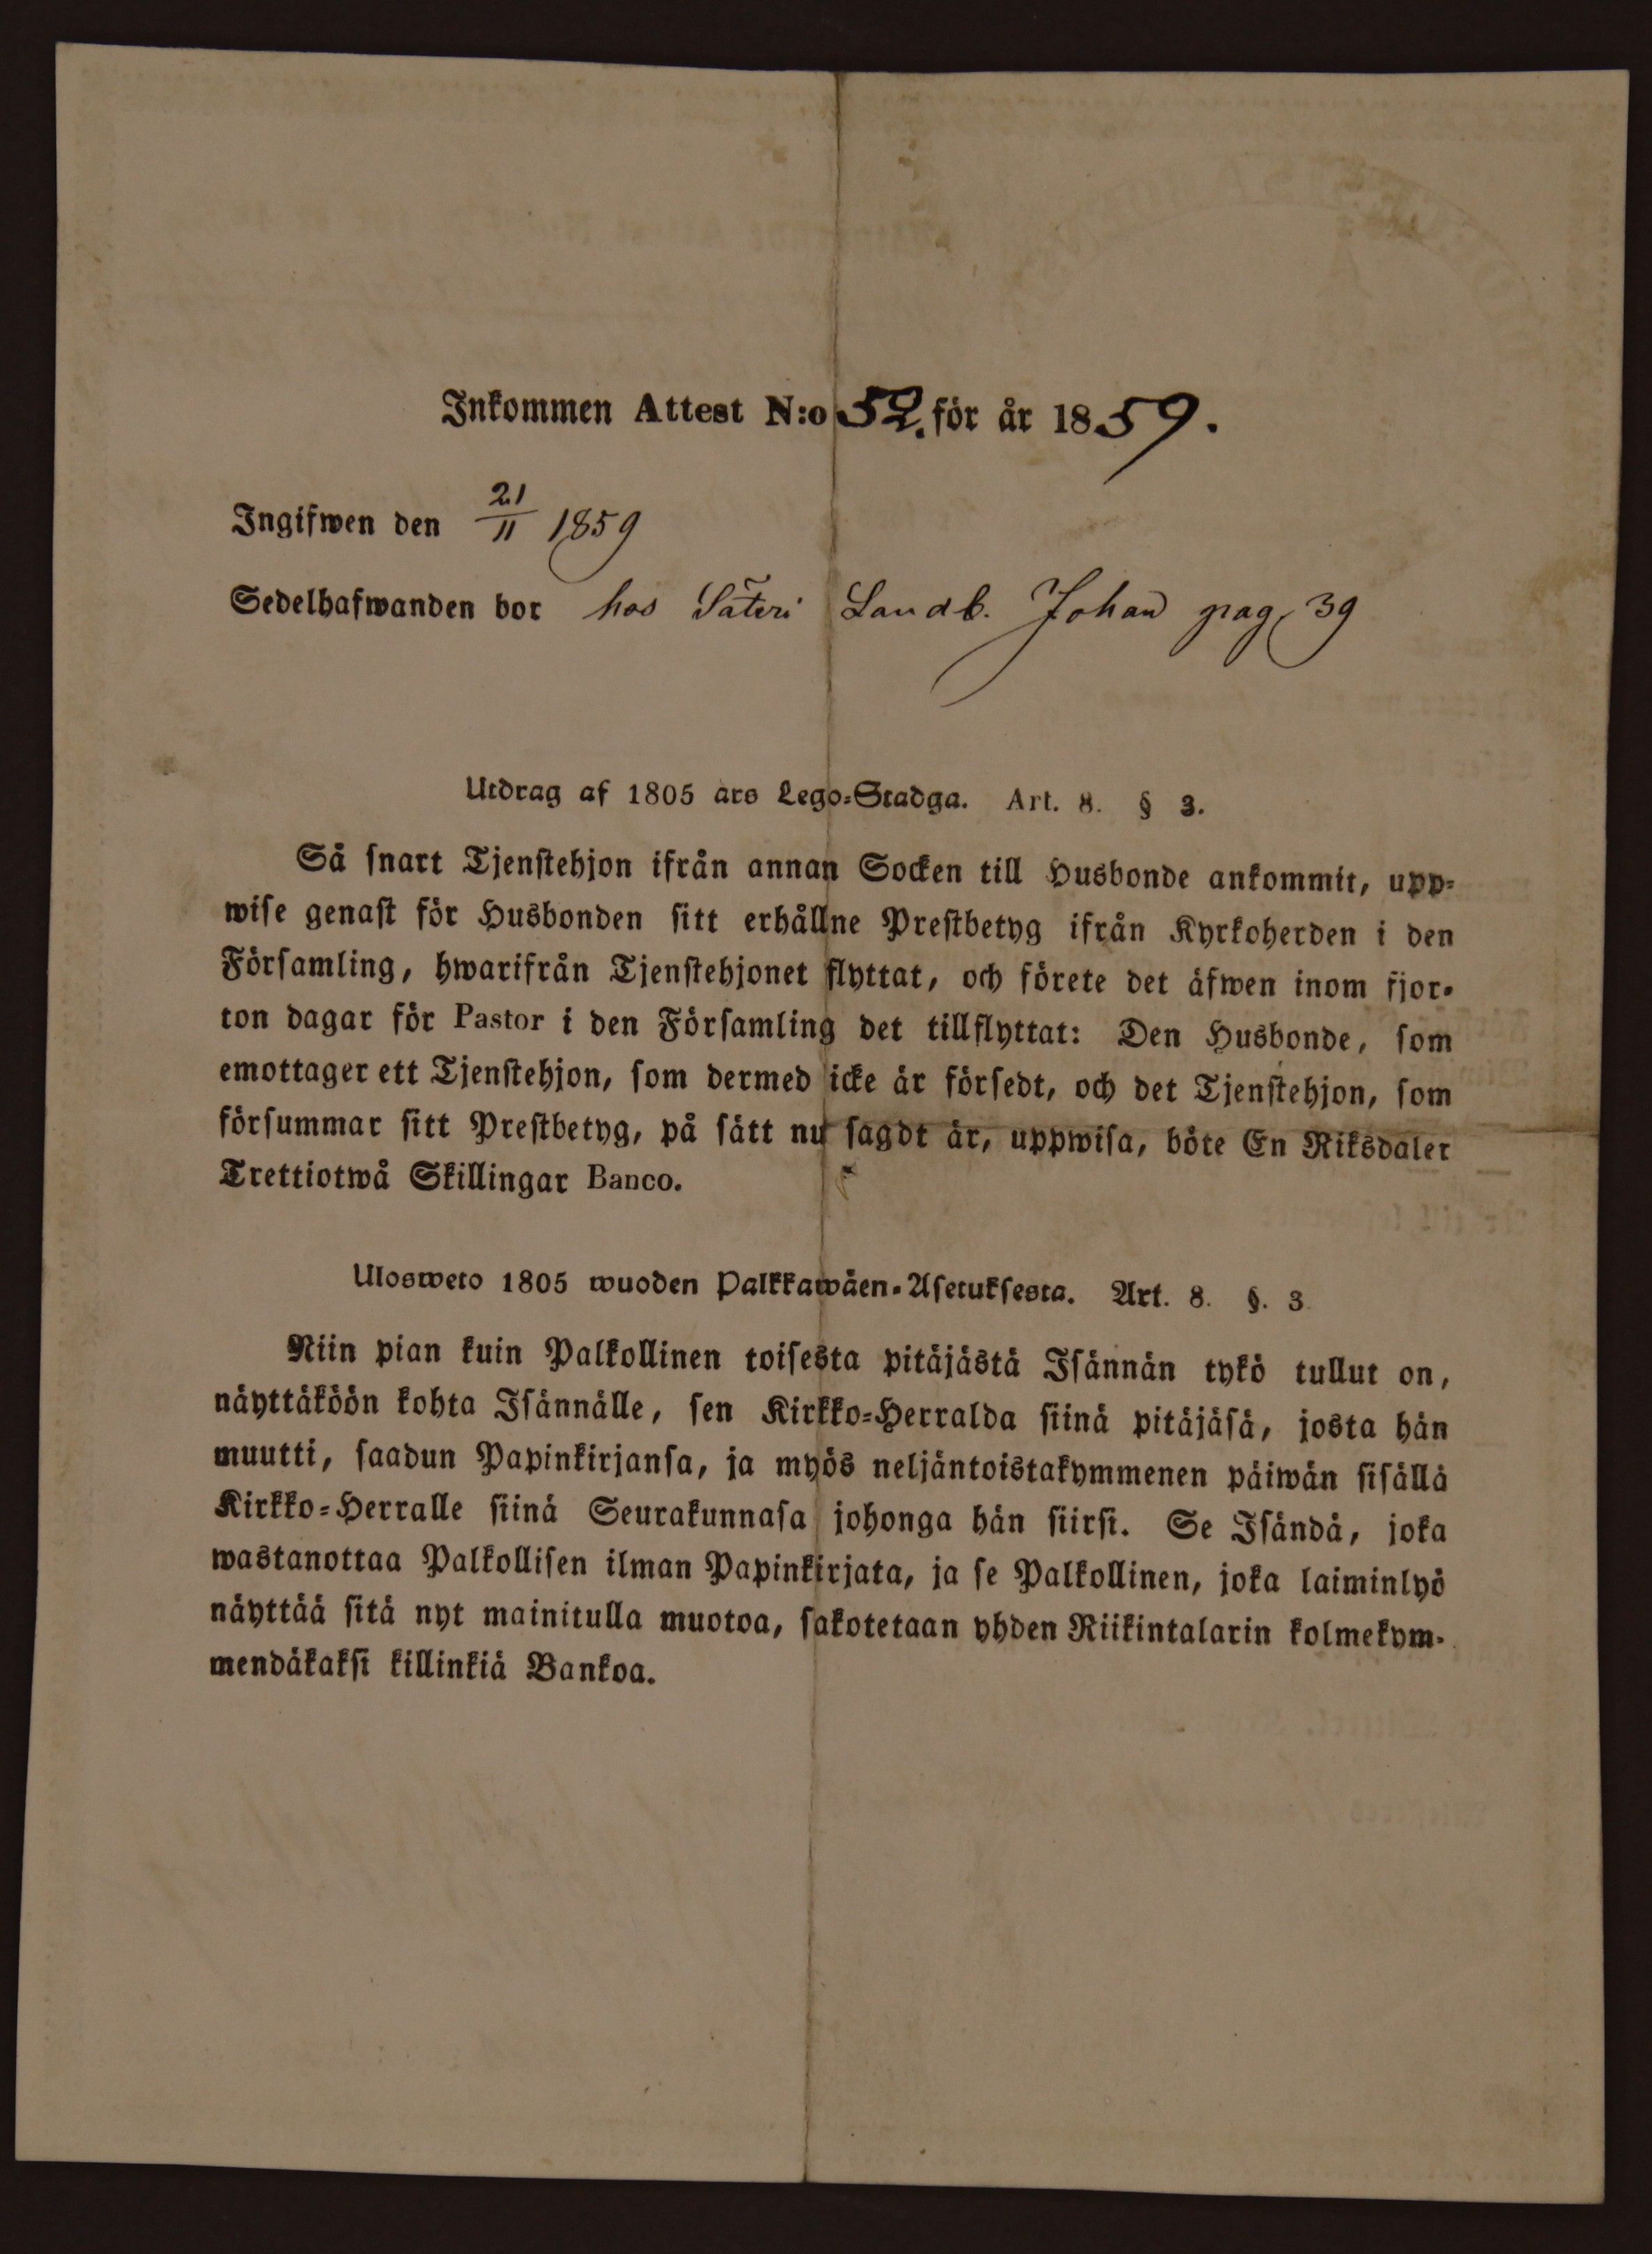 Inkommen Attest N:o 52. för år 1859.
Ingifwen den 21/11 1859
Sedelhafwanden bor hos Säteri Landb. Johan pag 39
Utdrag af 1805 års Lego-Stadga. Art. 8. § 3.
Så snart Tjenstehjon ifrån annan Socken till Husbonde ankommit, upp-
wise genast för Husbonden sitt erhållne Prestbetyg ifrån Kyrkoherden i den
Församling, hwarifrån Tjenstehjonet flyttat, och förete det äfwen inom fjor-
ton dagar för Pastor i den Församling det tillflyttat: Den Husbonde, som
emottager ett Tjenstehjon, som dermed icke är försedt, och det Tjenstehjon, som
försummar sitt Prestbetyg, på sätt nu sagdt är, uppwisa, böte En Riksdaler
Trettiotwå Skillingar Banco.
Ulosweto 1805 wuoden Palkkawäen-Asetuksesta. Art. 8. §. 3
Niin pian kuin Palkollinen toisesta pitäjästä Isännän tykö tullut on,
näyttäköön kohta Isännälle, sen Kirkko-Herralda siinä pitäjäsä, josta hän
muutti, saadun Papinkirjansa, ja myös neljäntoistakymmenen päiwän sisällä
Kirkko-Herralle siinä Seurakunnasa johonga hän siirsi. Se Isändä, joka
wastanottaa Palkollisen ilman Papinkirjata, ja se Palkollinen, joka laiminlyö
näyttää sitä nyt mainitulla muotoa, sakotetaan yhden Riikintalarin kolmekym-
mendäkaksi killinkiä Bankoa.